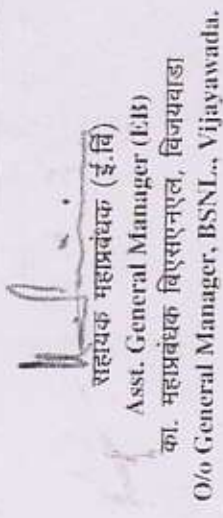 सहायक महाप्रबंधक (ई.वि)
Asst. General Manager (EB)
का. महाप्रबंधक विएसएनएल, विजयवाडा
O/o General Manager, BSNL., Vijayawada.